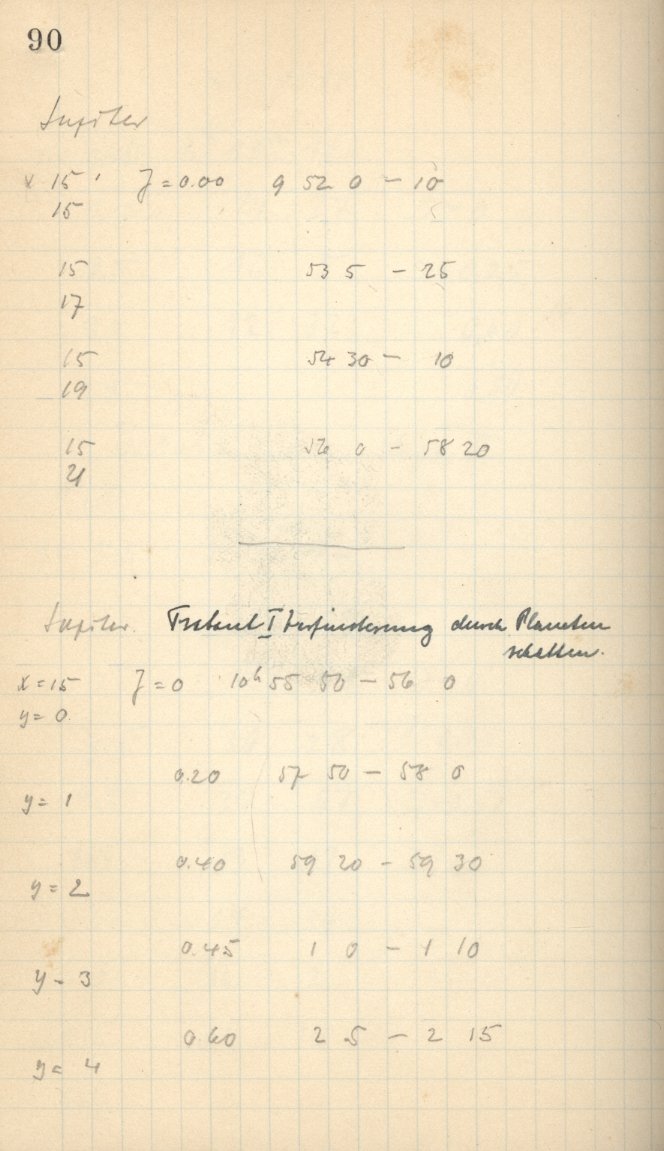 90
Jupiter
x 15 J = 0.00 9 52 0 – 10
15
15 53 5 – 25
17
15 54 30 – 10
19
15 56 0 – 58 20
21
Jupiter. Trabant I Verfinsterung durch Planeten
schatten.
x = 15 J = 0 10h 55 50 – 56 0
y = 0
0.20 57 50 – 58 0
y = 1
0.40 59 20 – 59 30
y = 2
0.45 1 0 – 1 10
y – 3
0.60 2 5 – 2 15
y = 4